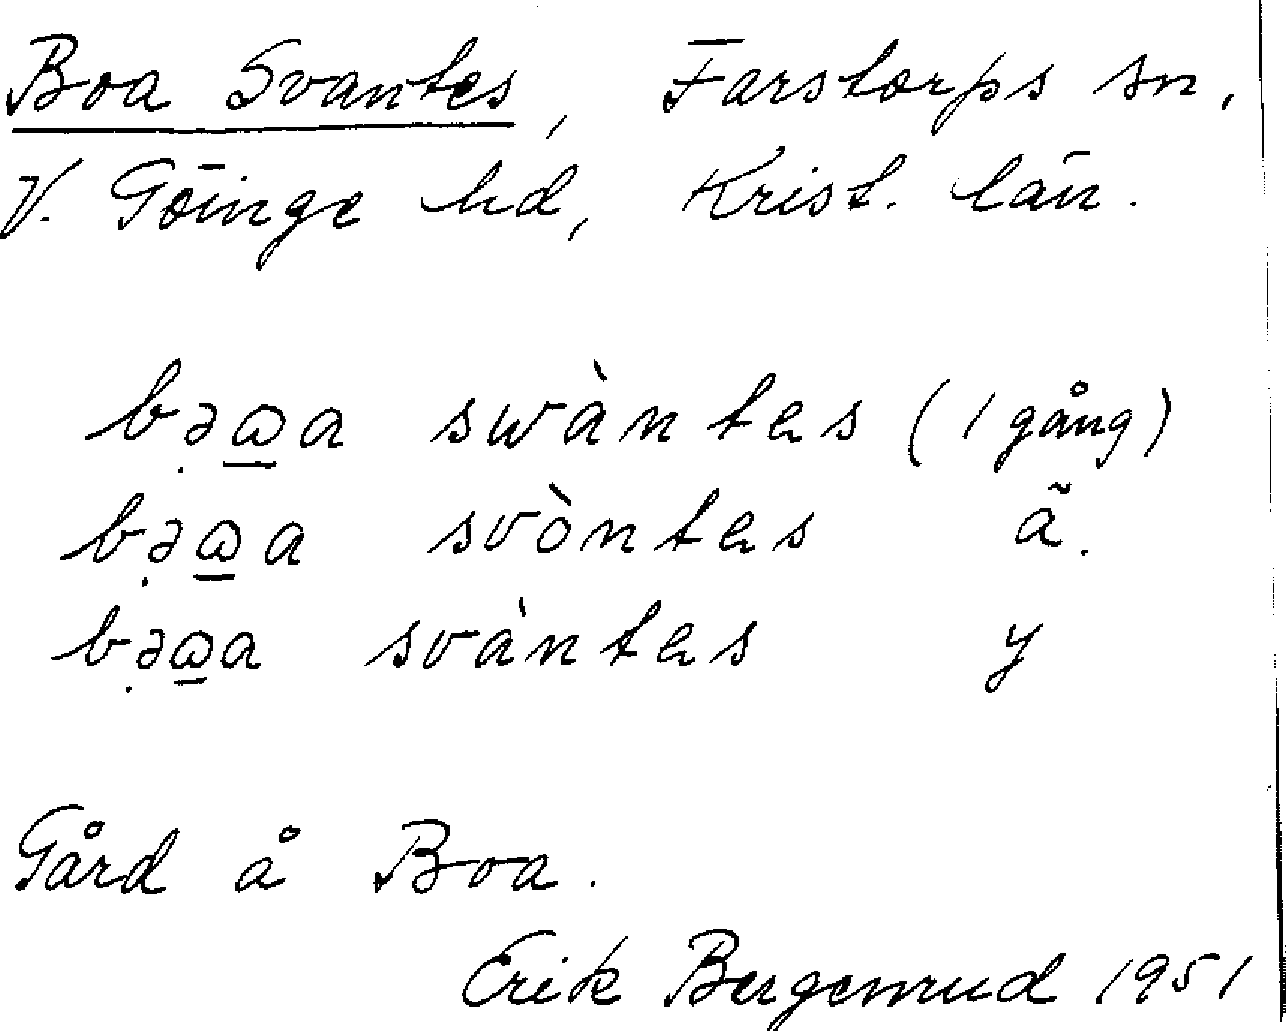 Boa Svantes, Farstorps sn.
V. Göinge hd, Krist. län.
bə̣ꞷ̲a swàntes (1 gång)
bə̣ꞷ̲a svòntes ä.
bə̣ꞷ̲a svàntes y
Gård å Boa.
Erik Bergenrud 1951